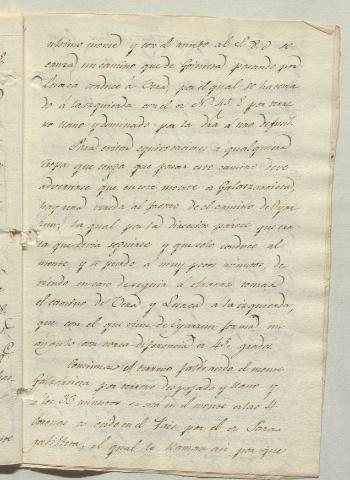 ultimo monte y con el rumbo al S. S. O se
cruza un camino que de Goizueta pasando por
Lesaca conduce à Vera, por el qual se ha toma
do à la izquierda con el de N. 45 E por terre
no llano y dominado por la dra á tiro de fusil.
Para evitar equivocaciones a qualquiera
tropa que tenga que pasar este camino debe
advertirse que en este monte de Galarzarrieta,
hay una vereda al frente de el camino de Oyar
zun, la qual por la direccion parece que sea
la que devia seguirse y que solo conduce al
monte, y se pierde a muy pocos minutos, de
viendo en caso de seguir à otra tomar
el camino de Vera y Lesaca à la izquierda,
que con el que viene de Oyarzun forma un
angulo con corta diferencia de 45 grados.
Continua el terreno faldeando el monte
por terreno despejado y llano y
a los 33 minutos se está en el monte de las 4
coronas conocido en el Pais por el de
el qual le llaman asi por que